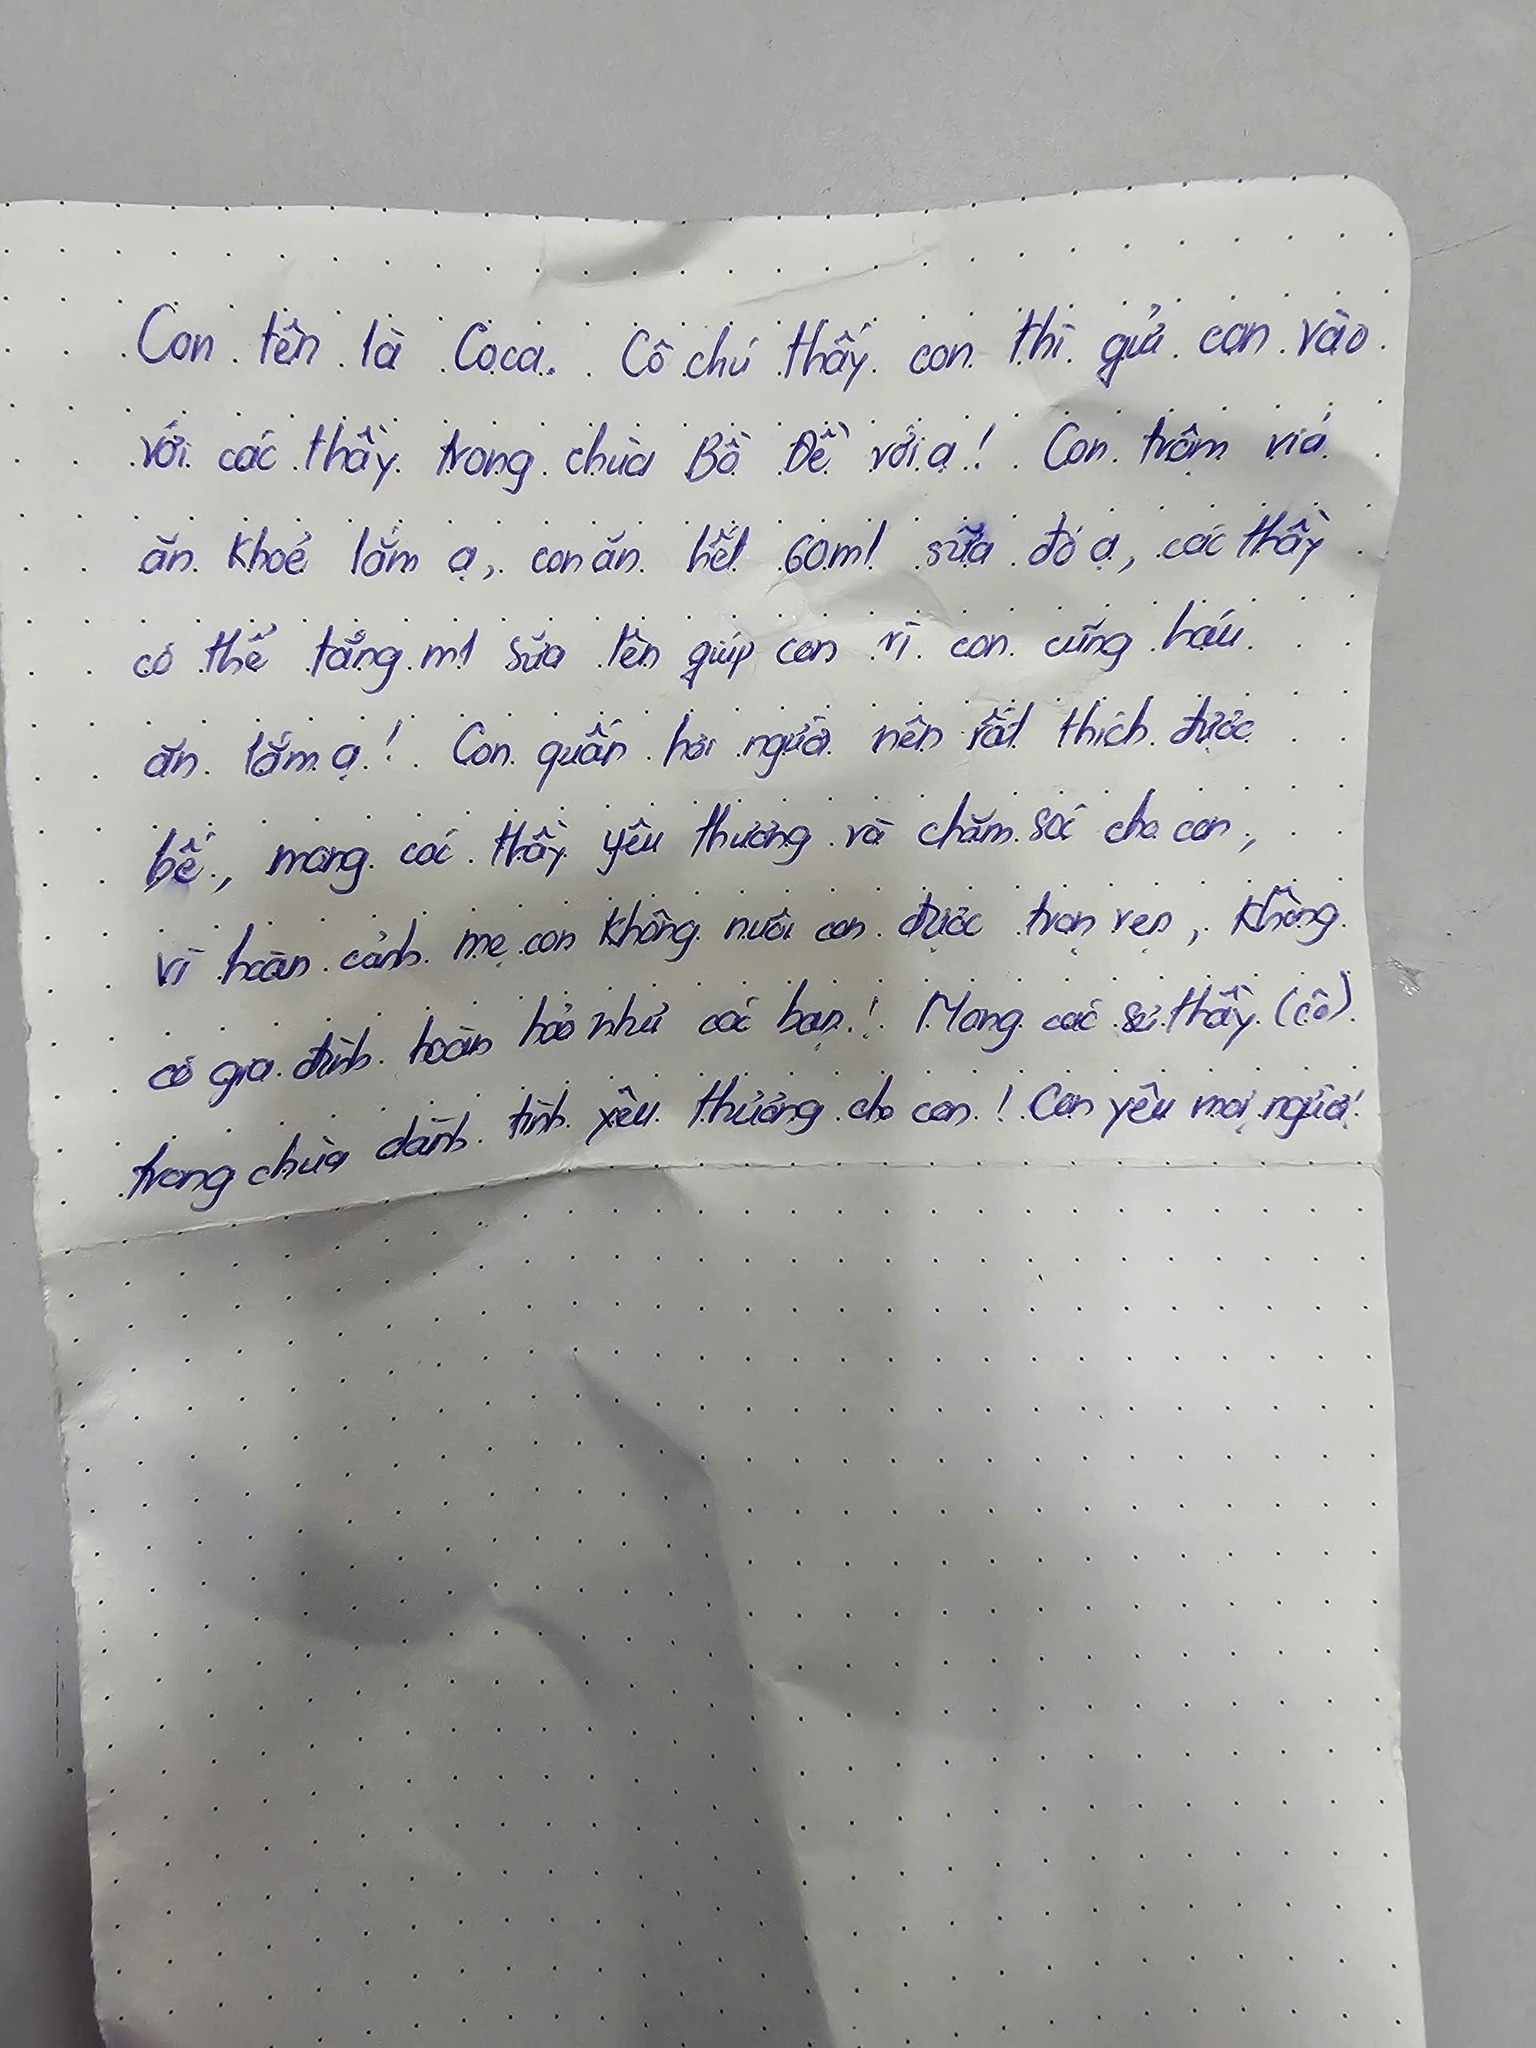 Con tên là Coca. Cô chú thấy con thì gửi con vào
với các thầy trong chùa Bồ Đề với ạ! Con trộm vía
ăn khoẻ lắm ạ, con ăn hết 60ml sữa đó ạ, các thầy
có thể tăng ml sữa lên giúp con vì con cũng háu
ăn lắm ạ! Con quấn hơi người nên rất thích được
bế, mong các thầy yêu thương và chăm sóc cho con,
vì hoàn cảnh mẹ con không nuôi con được trọn vẹn, không
có gia đình hoàn hảo như các bạn! Mong các sư thầy (cô)
trong chùa dành tình yêu thương cho con! Con yêu mọi người!